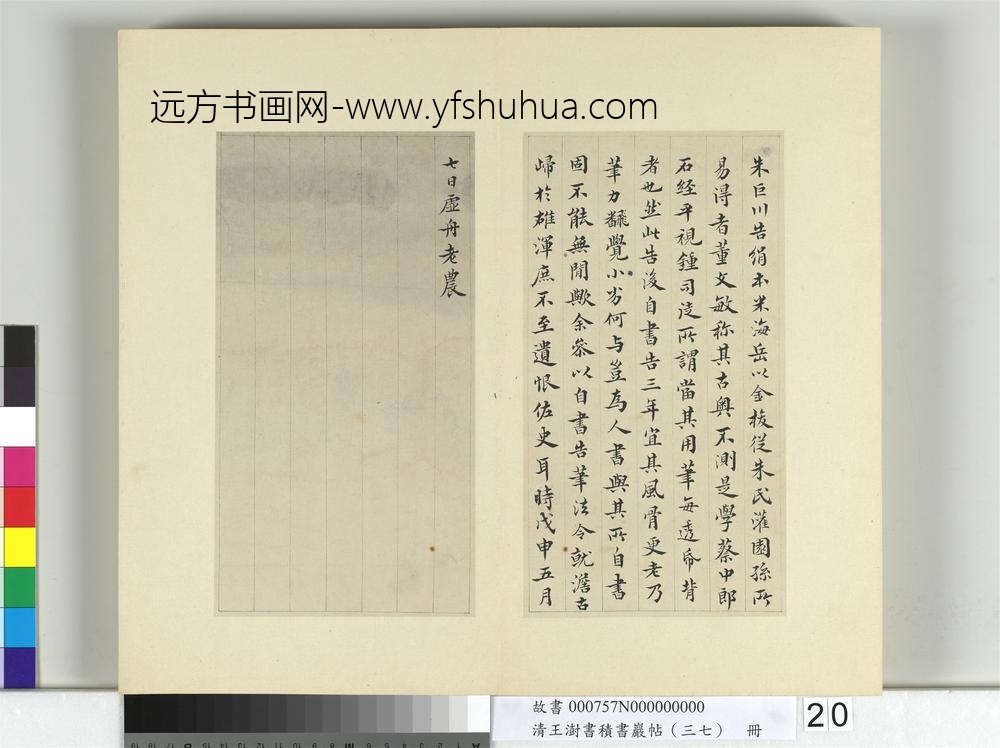 远方书画网-www.yfshuhua.com
朱巨川告絹本米海岳以金梭從朱氏灌園孫所
易得者董文敏称其古奥不測是學蔡中郎
石經平視鍾司徒所謂當其用筆每透帋背
者也然此告後自書告三年宜其風骨更老乃
筆力翻覺小劣何与豈為人書與其所自書
固不能無閒歟余叅以自書告筆法令就澹古
歸於雄渾庶不至遺恨佐史耳時戊申五月
七日虛舟老農
故書 000757N000000000
清王澍書積書巖帖（三七） 冊
20